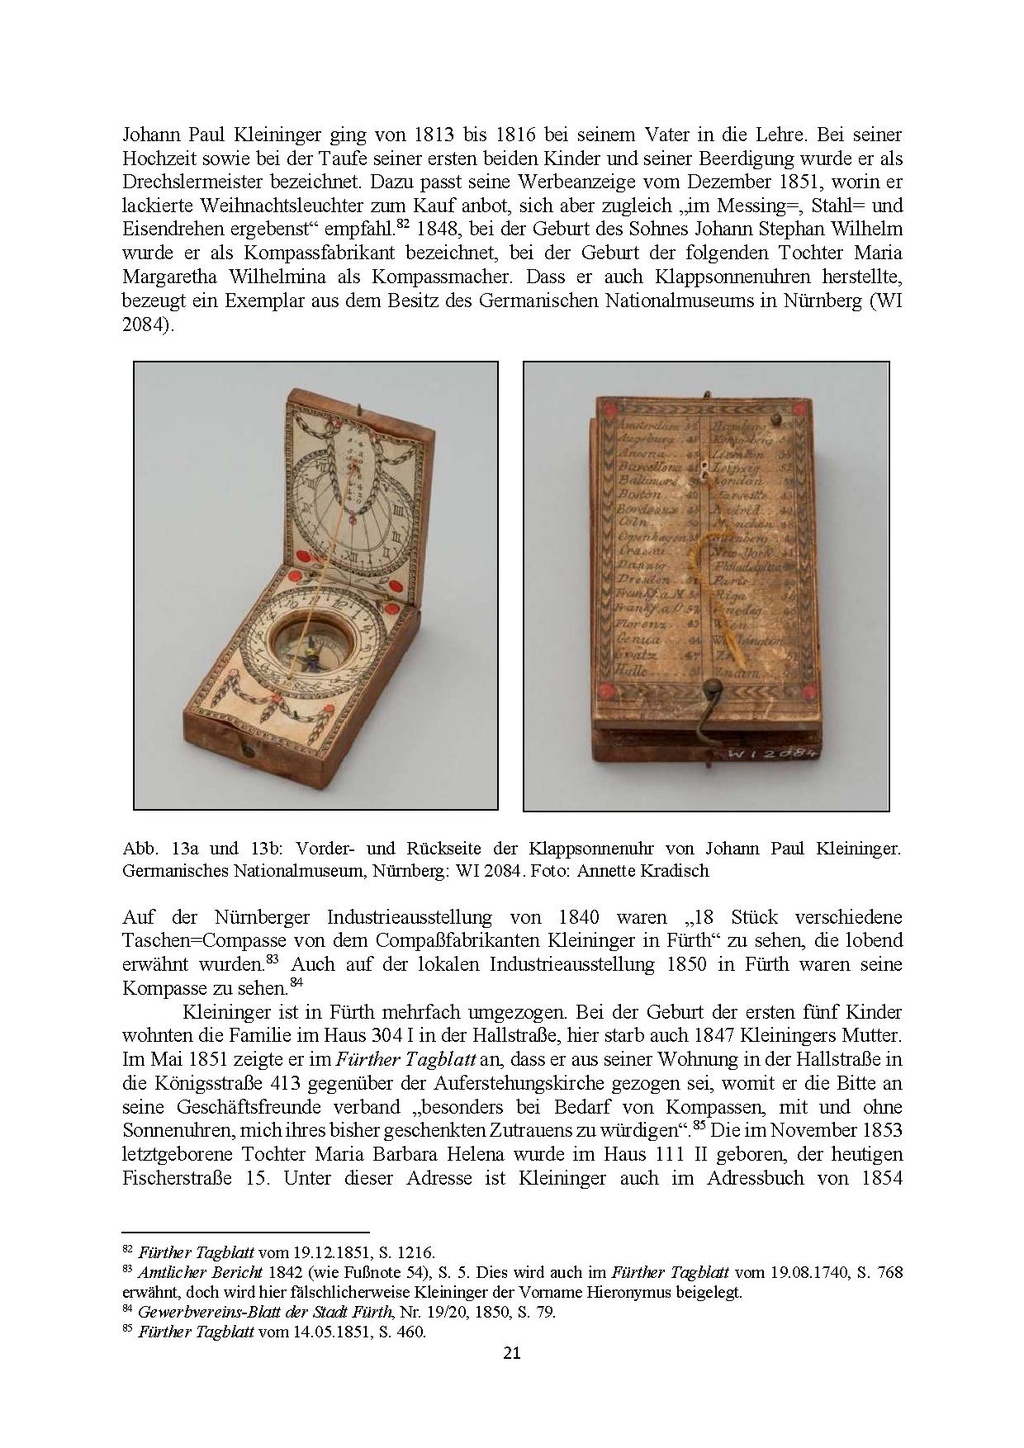 Johann Paul Kleininger ging von 1813 bis 1816 bei seinem Vater in die Lehre. Bei seiner
Hochzeit sowie bei der Taufe seiner ersten beiden Kinder und seiner Beerdigung wurde er als
Drechslermeister bezeichnet. Dazu passt seine Werbeanzeige vom Dezember 1851, worin er
lackierte Weihnachtsleuchter zum Kauf anbot, sich aber zugleich „im Messing=, Stahl= und
Eisendrehen ergebenst“ empfahl.⁸² 1848, bei der Geburt des Sohnes Johann Stephan Wilhelm
wurde er als Kompassfabrikant bezeichnet, bei der Geburt der folgenden Tochter Maria
Margaretha Wilhelmina als Kompassmacher. Dass er auch Klappsonnenuhren herstellte,
bezeugt ein Exemplar aus dem Besitz des Germanischen Nationalmuseums in Nürnberg (WI
2084).
Amsterdam 52 Hamburg
Augsburg 48 Königsberg
Ancona Lissabon
Barcellona Leipzig
Baltimore London
Boston Marseille
Bordeaux Madrid
Cöln München
Copenhagen Nürnberg
Cracau New York
Danzig Philadelphia
Dresden Paris
Frankf. a M. Riga
Frankf. a O. Venedig
Florenz Wien
Genua Washington
Gratz
Halle Znaim
WI 2084
Abb. 13a und 13b: Vorder- und Rückseite der Klappsonnenuhr von Johann Paul Kleininger.
Germanisches Nationalmuseum, Nürnberg: WI 2084. Foto: Annette Kradisch
Auf der Nürnberger Industrieausstellung von 1840 waren „18 Stück verschiedene
Taschen=Compasse von dem Compaßfabrikanten Kleininger in Fürth“ zu sehen, die lobend
erwähnt wurden.⁸³ Auch auf der lokalen Industrieausstellung 1850 in Fürth waren seine
Kompasse zu sehen.⁸⁴
Kleininger ist in Fürth mehrfach umgezogen. Bei der Geburt der ersten fünf Kinder
wohnten die Familie im Haus 304 I in der Hallstraße, hier starb auch 1847 Kleiningers Mutter.
Im Mai 1851 zeigte er im Fürther Tagblatt an, dass er aus seiner Wohnung in der Hallstraße in
die Königsstraße 413 gegenüber der Auferstehungskirche gezogen sei, womit er die Bitte an
seine Geschäftsfreunde verband „besonders bei Bedarf von Kompassen, mit und ohne
Sonnenuhren, mich ihres bisher geschenkten Zutrauens zu würdigen“.⁸⁵ Die im November 1853
letztgeborene Tochter Maria Barbara Helena wurde im Haus 111 II geboren, der heutigen
Fischerstraße 15. Unter dieser Adresse ist Kleininger auch im Adressbuch von 1854
⁸² Fürther Tagblatt vom 19.12.1851, S. 1216.
⁸³ Amtlicher Bericht 1842 (wie Fußnote 54), S. 5. Dies wird auch im Fürther Tagblatt vom 19.08.1740, S. 768
erwähnt, doch wird hier fälschlicherweise Kleininger der Vorname Hieronymus beigelegt.
⁸⁴ Gewerbvereins-Blatt der Stadt Fürth, Nr. 19/20, 1850, S. 79.
⁸⁵ Fürther Tagblatt vom 14.05.1851, S. 460.
21